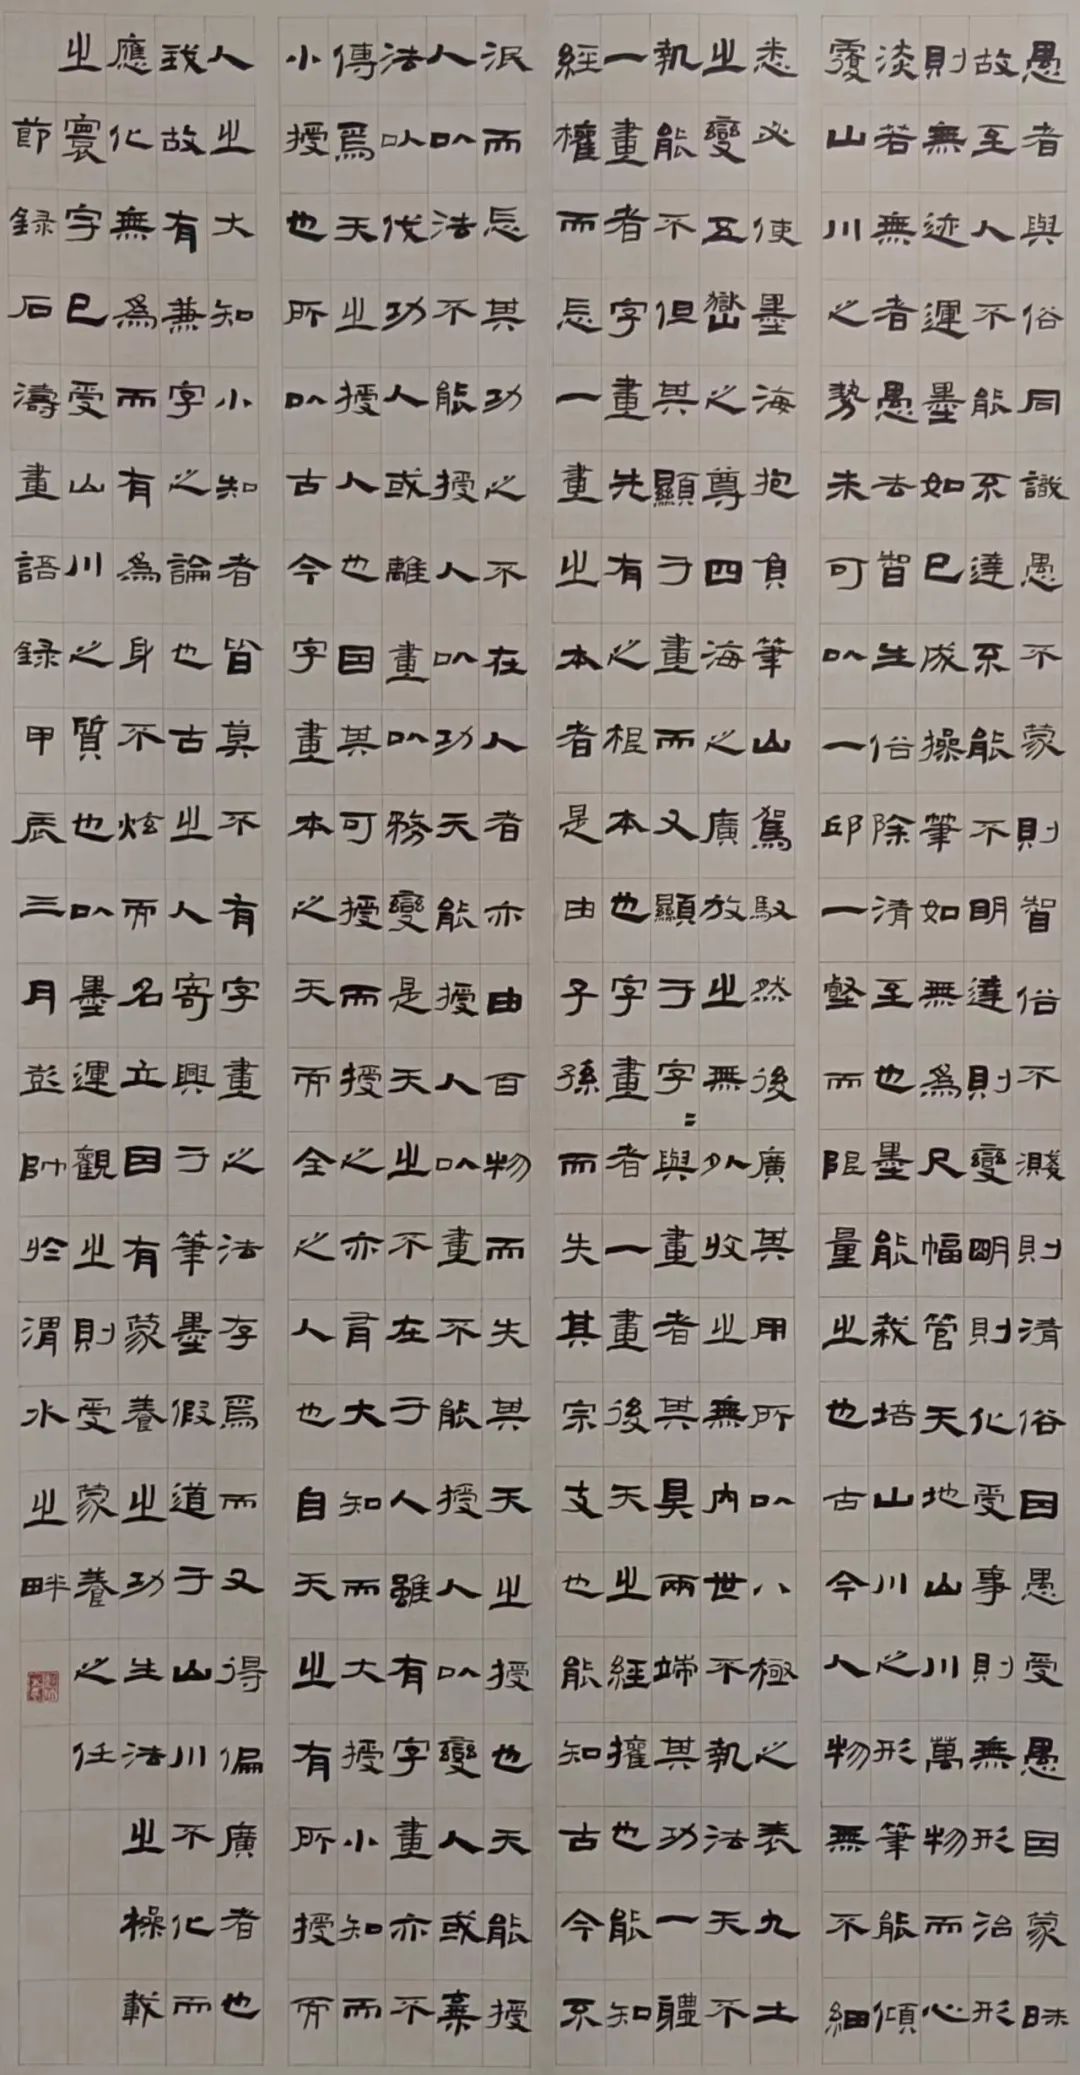 愚者與俗同識愚不蒙則智俗不濺則清俗因愚受愚因蒙昧
故至人不能不達不能不明達則變明則化受事則無形治形
則無迹運墨如已成操筆如無為尺幅管天地山川萬物而心
淡若無者愚去智生俗除清至也墨能栽培山川之形筆能傾
覆山川之勢未可以一邱一壑而限量之也古今人物無不細
悉必使墨海抱負筆山駕馭然後廣其用所以八極之表九土
之變五嶽之尊四海之廣放之無外收之無內世不執法天不
執能不但其顯于畫而又顯于字〻與畫者其具兩端其功一體
一畫者字畫先有之根本也字畫者一畫後天之經權也能知
經權而忘一畫之本者是由子孫而失其宗支也能知古今不
泯而忘其功之不在人者亦由百物而失其天之授也天能授
人以法不能授人以功天能授人以畫不能授人以變人或棄
法以伐功人或離畫以務變是天之不在于人雖有字畫亦不
傳焉天之授人也因其可授而授之亦有大知而大授小知而
小授也所以古今字畫本之天而全之人也自天之有所授而
人之大知小知者皆莫不有字畫之法存焉而又得偏廣者也
我故有兼字之論也古之人寄興于筆墨假道于山川不化而
應化無為而有為身不炫而名立因有蒙養之功生法之操載
之寰宇已受山川之質也以墨運觀之則受蒙養之任
節錄石濤畫語錄甲辰三月彭帥於渭水之畔